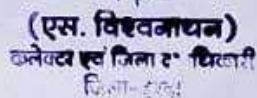 (एस. विश्वनाथन)
कलेक्टर एवं जिला द० धिकारी
जिला-